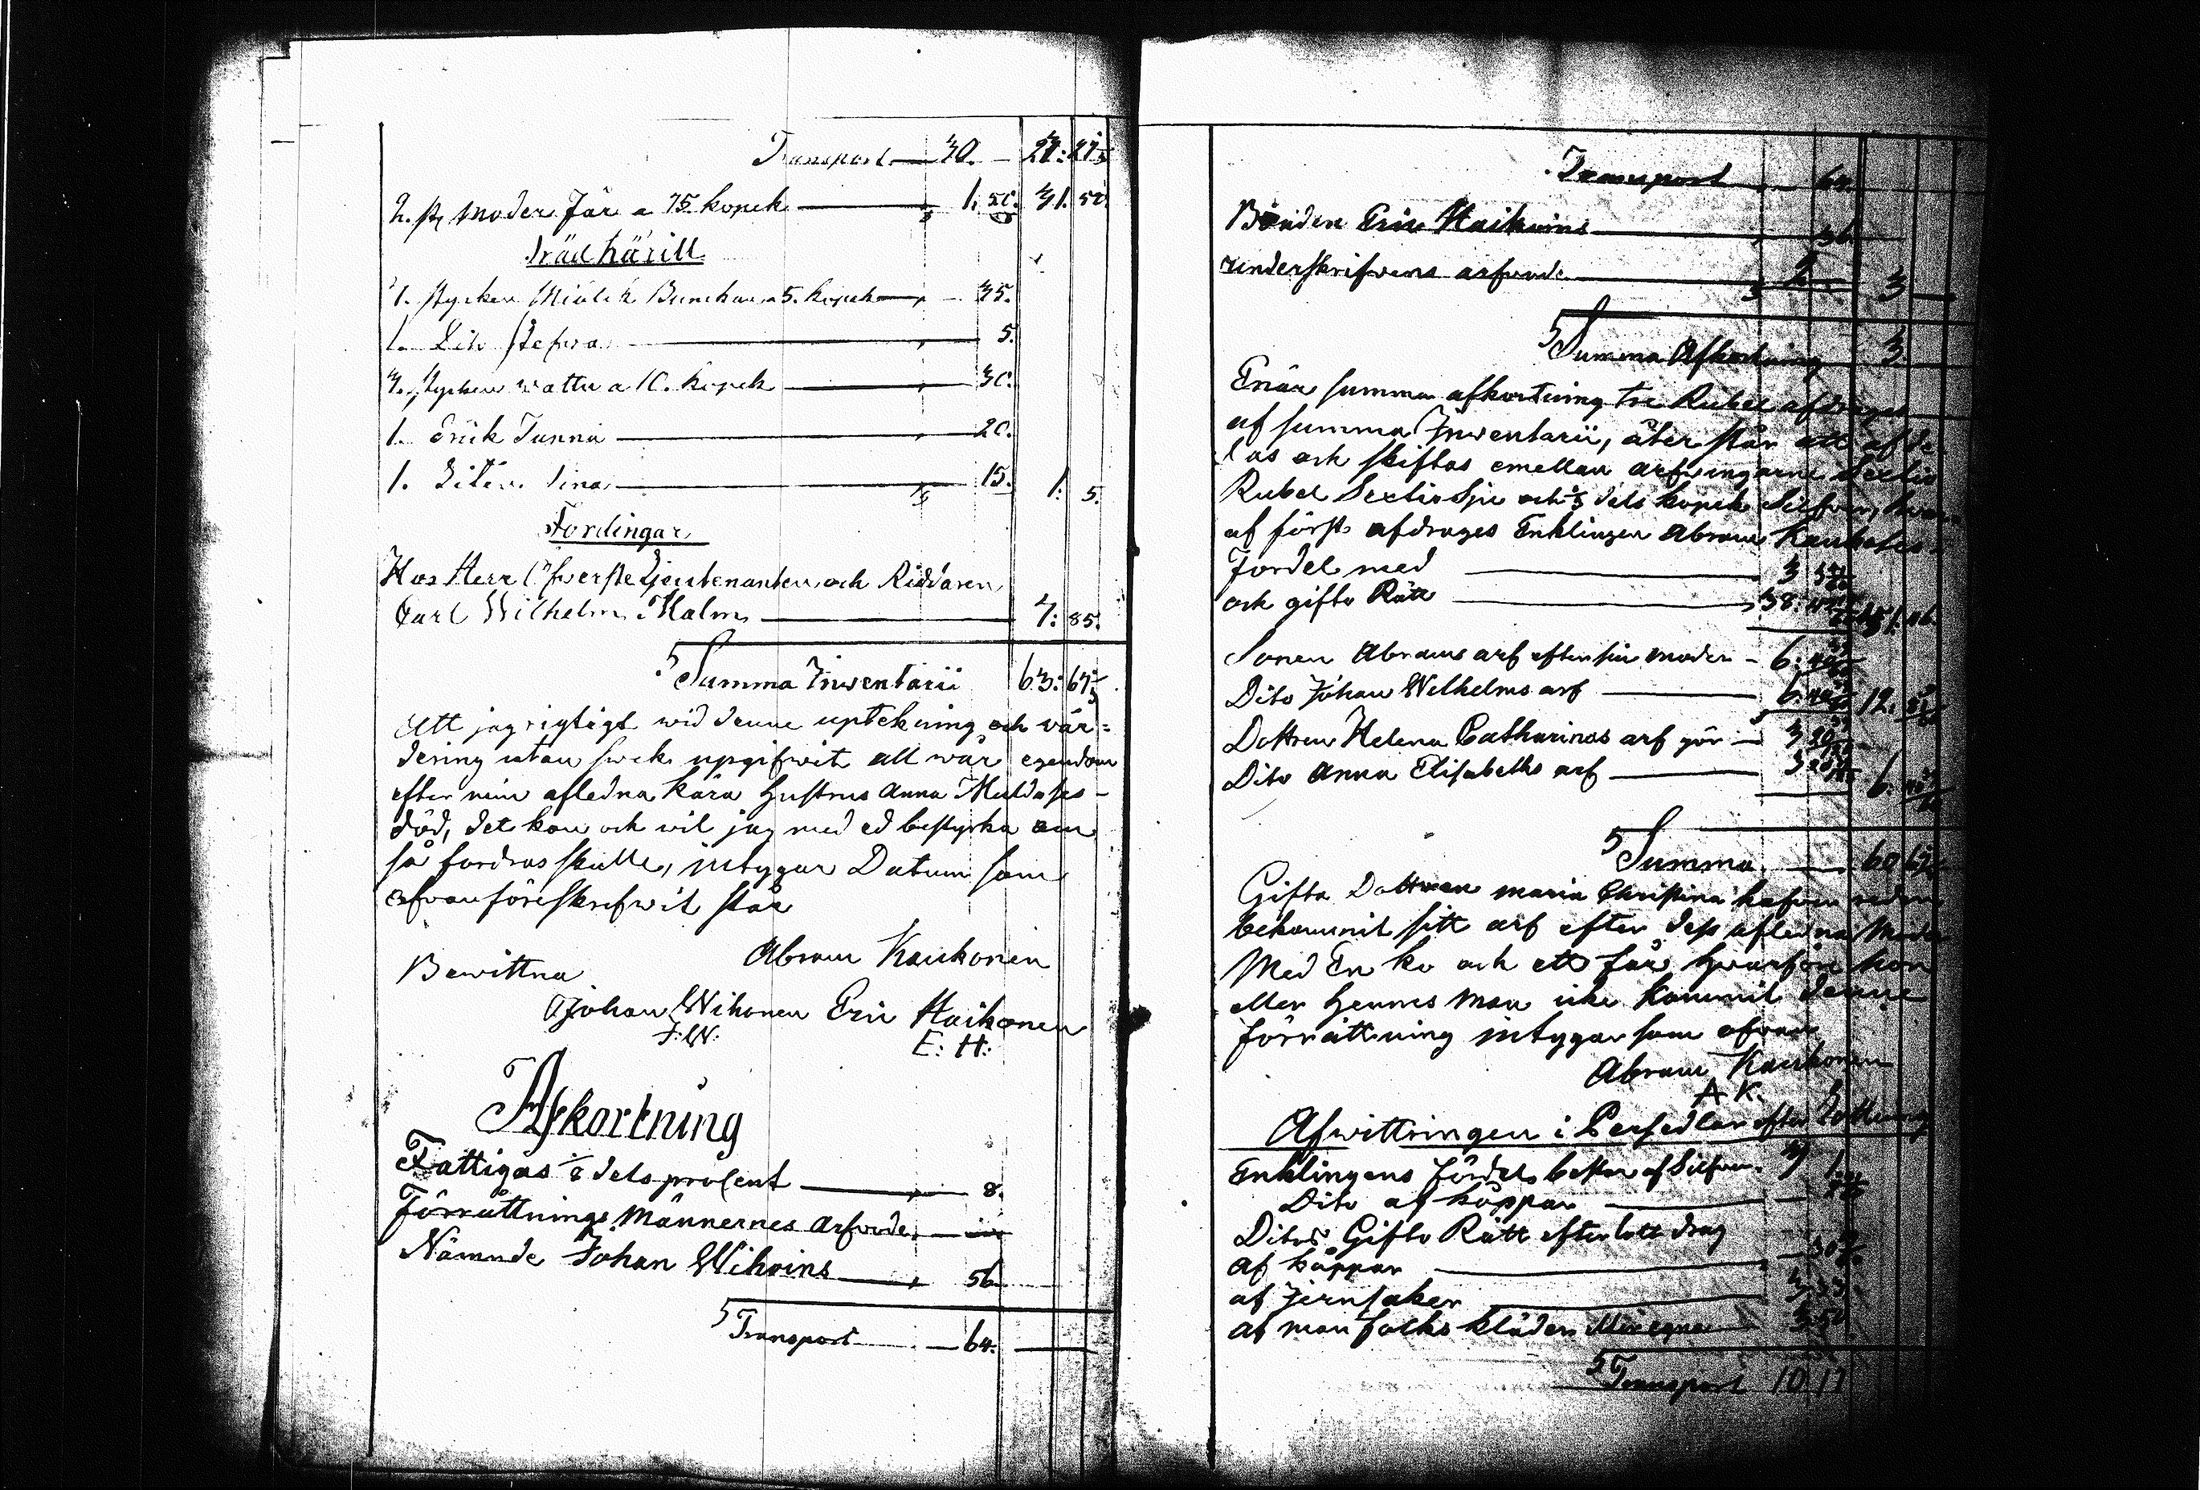 Transport — 30. — 27: 27
2. st moder Får a 75. kopek — 1. 50. 31. 50.
Trädkärill
7. stycken Miölck Bunckar a 5. kopek — 35.
1. Dito stefva — 5.
3. stycken wattu a 10. kopek — 30.
1. Drick Tunna — 20.
1. Liten tina — 15. 1. 5.
Fordringar
Hos Herr Öfwerste Lieutenanten och Riddaren
Carl Wilhelm Malm — 7: 85.
Summa Inwentarii 63: 67
Att jag rigtigt wid denne uptekning och wär=
dering utan swek upgifwit all wår egendom
efter min afledna kära hustrus Anna Muldases
död, det kan och wil jag med ed bestyrka om
så fordras skulle, intygar Datum som
ofwanföreskrefwit står
Abram Kaukonen
Bewittna
Johan Wihonen Eric Haikonen
J:W: E: H:
Afkortning
Fattigas 1/8 dels procent — 8.
Förrättnings Männernes arfwode —
Nämnde Johan Wihoins — 56
Transport — 64.
Transport — 64.
Bonden Eric Haikoins — 36
underskrifwens arfwode — 2 3 —
Summa Afkortning 3.
Enär summa afkortning tre Rubel afdrages
af summa Inwentarii, återstår att afde
las och skiftas emellan arfwingarne Sextio
Rubel Sextiosju och dels kopek Silfwer, hwar
af först afdrages Enklingen Abram Kaukoses
Fordel med — 3
och gifto Rätt — 38:
Sonen Abrams arf efter sin moder — 6:
Dito Johan Wilhelms arf — 6. 12:
Dottren Helena Catharinas arf gör — 3
Dito Anna Elisabeths arf — 3 6.
Summa — 60 67
Gifta Dottren Maria Christina hafwer redan
bekommit sitt arf efter dess afledna Moder
Med En ko och ett får, hwarföre hon
eller hennes man icke kommit denne
förrättning intygar som ofwan
Abram Kaukonen
A K.
Afwittringen i Persedlar efter Lottning
Enklingens fördel besten af Silfwer
Dito af kåppar —
Ditos Gifto Rätt efter lott drag
af kåppar —
af Jernsaker — 3. 33
af manfolks kläder — 3 50
Transport 10 17